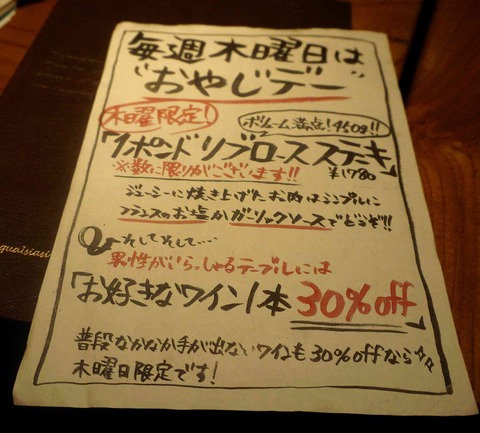 毎週木曜日は
"おやじデー"
木曜限定!
ボリューム満点!450g!!
「1ポンドリブロースステーキ」
※数に限りがございます!!
¥1780
ジューシーに焼き上げたお肉はシンプルに
フランスのお塩かガーリックソースでどうぞ!!
そしてそして…
男性がいらっしゃるテーブルには
「お好きなワイン1本 30%off」
普段なかなか手が出ないワインも30%offなら…
木曜日限定です!
quaisiasi